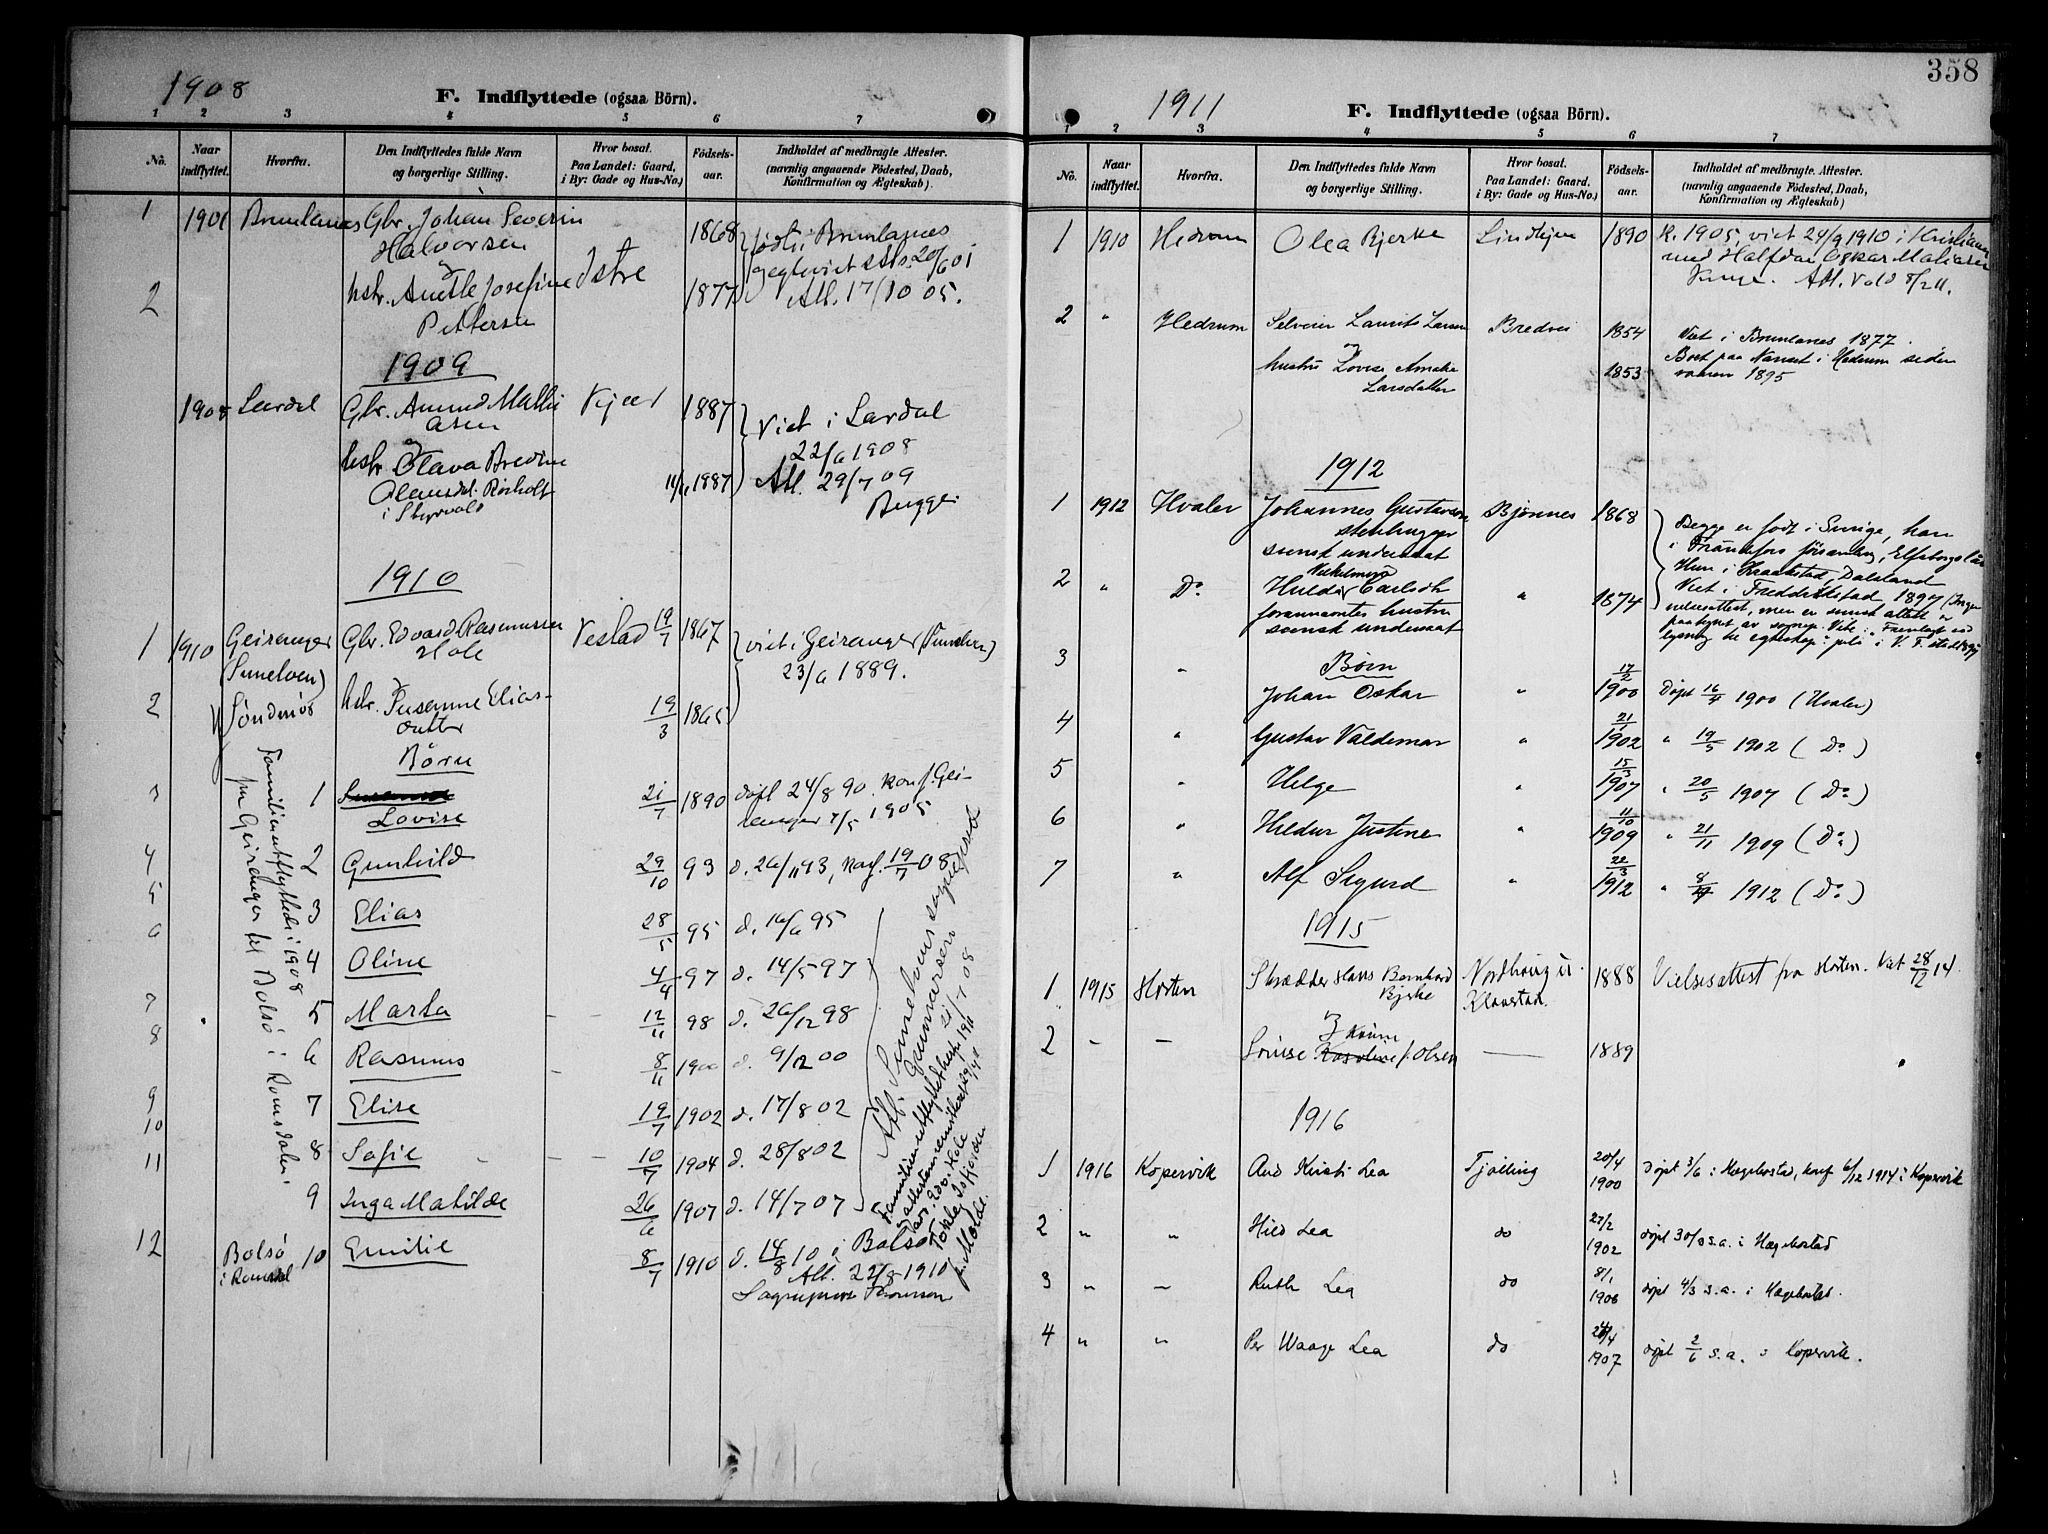 1908
F. Indflyttede (ogsaa Börn).
1 2 3 4 5 6 7
No. Naar indflyttet. Hvorfra. Den Indflyttedes fulde Navn og borgerlige Stilling. Hvor bosat. Paa Landet: Gaard, i By: Gade og Hus-No.) Födsels-aar. Indholdet af medbragte Attester. (navnlig angaaende Födested, Daab, Konfirmation og Ægteskab).
1 1901 Brunlanes Gbr. Johan Severin 1868 født i Brunlanes
Halvorsen ægteviet 20/6 01
2 hstr. Josefine Istre 1877 Att. 17/10 05.
Pettersen
1909
1908 Lardal Gbr. Amund Mathi Kjær 1887 viet i Lardal
asen 22/6 1908
hstr Olava Bredine 11/11 1887 Att. 29/7 09
Olausdt. Risholt Bugge
i Styrvold
1910
1 1910 Geiranger Gbr. Edvard Rasmussen Vestad 19/7 1867 viet i Geiranger (Sunelven)
(Sunelven) Hole 23/6 1889.
2 Söndmör hstr. Susanne Elias- 19/3 1865
datter
Børn
3 1 Lovise 21/7 1890 døpt 24/8 90. konf. Gei-
ranger 7/5 1905
4 2 Gunhild 29/10 93 d. 26/11 93, konf. 19/7 08
5 3 Elias 28/5 95 d. 16/6 95
6 4 Oline 4/4 97 d. 14/5 97
7 5 Marta 12/11 98 d. 26/12 98
8 6 Rasmus 8/11 1900 d. 9/12 00
9 7 Elise 19/7 1902 d. 17/8 02
10 8 Sofie 10/7 1904 d. 28/8 02
11 9 Inga Matilde 26/6 1907 d. 14/7 07
12 Bolsö 10 Emilie 8/7 1910 d. 14/8 10 i Bolsö
i Romsdal Att. 22/8 1910
Sogneprest
Familien utflyttede i 1908
fra Geiranger til Bolsö i Romsdalen
Att. Sunelvens sogneprest
Gunnarsen 21/7 08
pr. Molde.
358
1911
F. Indflyttede (ogsaa Börn).
1 2 3 4 5 6 7
No. Naar indflyttet. Hvorfra. Den Indflyttedes fulde Navn og borgerlige Stilling. Hvor bosat. Paa Landet: Gaard, i By: Gade og Hus-No.) Födsels-aar. Indholdet af medbragte Attester. (navnlig angaaende Födested, Daab, Konfirmation og Ægteskab)
1 1910 Hedrum Olea Bjerke 1890 K. 1905, viet 24/9 1910 i Kristiania
med Halfdan Oskar
Att.
2 " Hedrum Laurits Larsen Bredvei 1854 Viet i Brunlanes 1877.
og Boet paa Nanset i Hedrum siden
hustru Lovise Amalie 1853 vaaren 1895
Larsdatter
1912
1 1912 Hvaler Johannes Gustavson Bjønnes 1868 Begge er født i Sverige, han
stenhugger i
svensk undersaat Hun i Dalsland
2 " Do. Hulda Vilhelmina " 1874 Viet i Fredrikstad 1897
forannævntes hustru
svensk undersaat
Børn
3 " Johan Oskar " 17/2 1900 Døpt 16/4 1900 (Hvaler)
4 " Gustav Valdemar " 21/1 1902 " 19/5 1902 (Do)
5 " Helge " 15/3 1907 " 20/5 1907 (Do)
6 " Hildur Justine " 11/10 1909 " 21/11 1909 (Do)
7 " Alf Sigurd " 22/3 1912 " 1912 (Do)
1915
1 1915 Horten Skrædder Hans Bernhard Nordhaug u. 1888 Vielsesattest fra Horten. Viet 28/12 14.
Bjerke Klaastad.
2 – – Lovise f. Olsen – 1889
1916
1 1916 Kopervik Aud Kirsti Lea Tjølling 20/4 1900 døpt 3/6 i Hægebostad, konf 6/12 1914 i Kopervik
2 " " Hild Lea do 27/2 1902 døpt 30/3 s.a. i Hægebostad
3 " – Ruth Lea do 8/1 1906 døpt 4/3 s.a. i Hægebostad.
4 " " Per Waage Lea do 1907 døpt 2/6 s.a. i Kopervik.